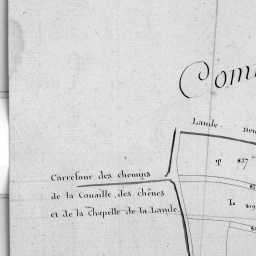 Com
Lande
Carrefour des chemins
de la Couaille, des chênes
et de la chapelle de la Lande.